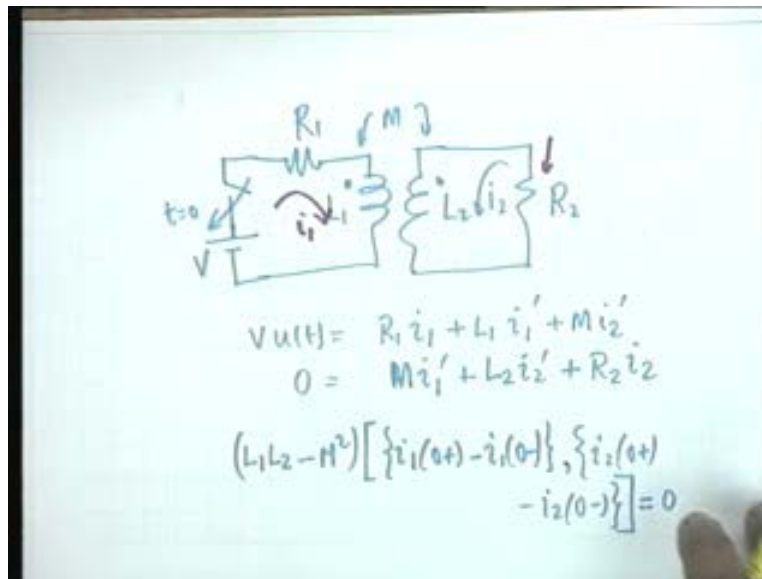 R₁ M
t=0 i₁ L₁ L₂ i₂ R₂
V
V u(t) = R₁ i₁ + L₁ i₁′ + M i₂′
0 = M i₁′ + L₂ i₂′ + R₂ i₂
(L₁L₂ − M²) [ {i₁(0+) − i₁(0−)}, {i₂(0+)
− i₂(0−)} ] = 0